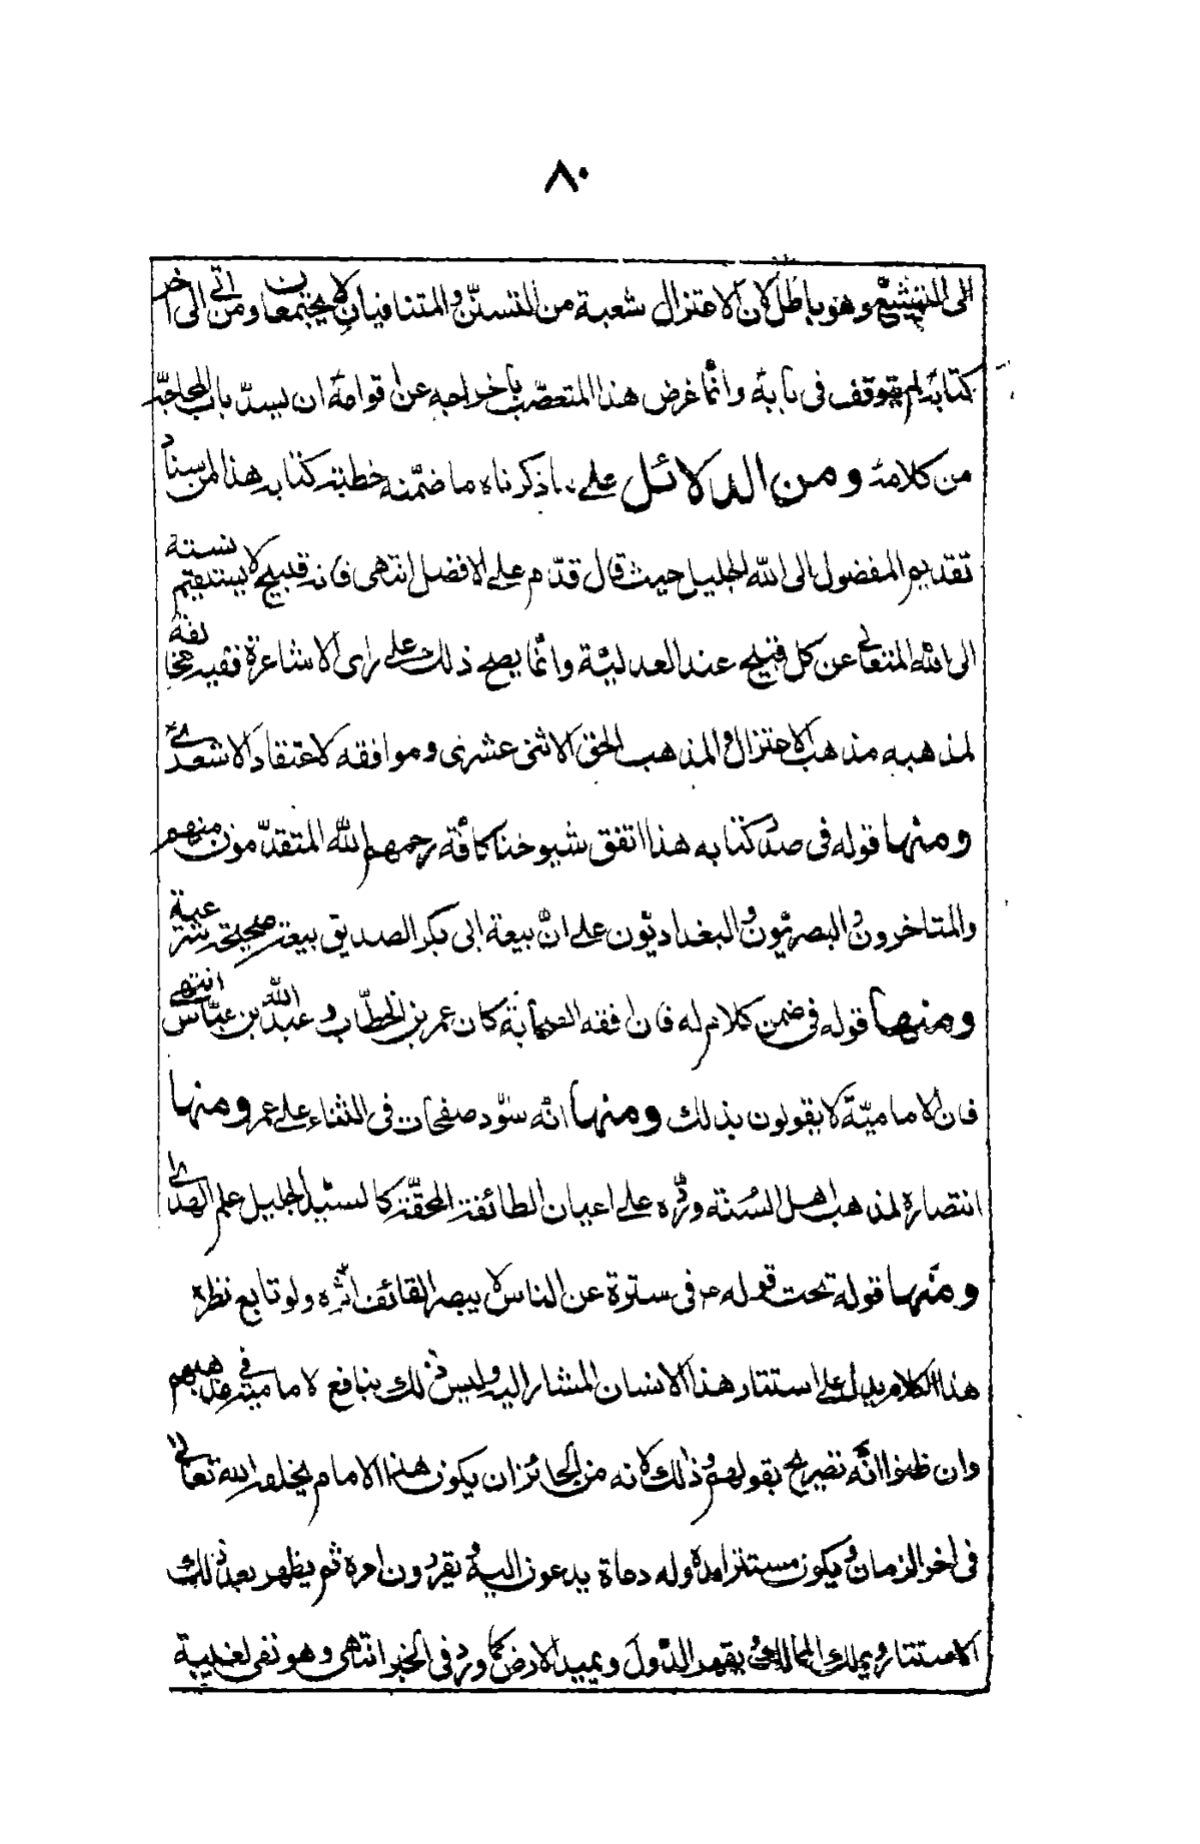 ٨٠
الى التشيّع وهو باطل لان الاعتزال شعبة من التسنّن والمتنافيان لا يجتمعان ومن اتى الى اخر
كتابه لم يتوقف فى بابه وانّما غرض هذا المتعصّب باخراجه عن اقوامه ان يسدّ باب المحاجّة
من كلامه ومن الدلائل على ما ذكرناه ما ضمّنه خطبة كتابه هذا من اسناد
تقديم المفضول الى الله الجليل حيث قال قدّم على الافضل انتهى فانه قبيح لا يستقيم نسبته
الى الله المتعالى عن كل قبيح عند العدليّة وانّما يصح ذلك على راى الاشاعرة ففيه مخالفة
لمذهبه مذهب الاعتزال والمذهب الحق الاثنى عشرى وموافقه لاعتقاد الاشعرى
ومنها قوله فى صدر كتابه هذا اتفق شيوخنا كافّة رحمهم الله المتقدّمون منهم
والمتاخرون والبصريّون والبغداديّون على انّ بيعة ابى بكر الصديق بيعة صحيحة شرعية
ومنها قوله فى ضمن كلام له فان افقه الصحابة كان عمر بن الخطّاب وعبد الله بن عبّاس انتهى
فان الاماميّة لا يقولون بذلك ومنها انّه سوّد صفحات فى الثناء على عمر ومنها
انتصاره لمذهب اهل السنّة وردّه على اعيان الطائفة المحقّة كالسيّد الجليل علم الهدى
ومنها قوله تحت قوله ع فى سترة عن الناس لا يبصر القائف اثره ولو تابع نظره
هذا الكلام يدل على استتار هذا الانسان المشار اليه وليس ذلك بنافع لامامية فى مذهبهم
وان ظنوا انّه تصريح بقولهم وذلك لانه من الجائز ان يكون هذا الامام يخلقه الله تعالى
فى اخر الزمان ويكون مستترا مدة وله دعاة يدعون اليه ويقررون امره ثم يظهر بعد ذلك
الاستتار ويملك الممالك ويقهر الدّول ويمهد الارض كما ورد فى الخبر انتهى وهو نفى لغيبة